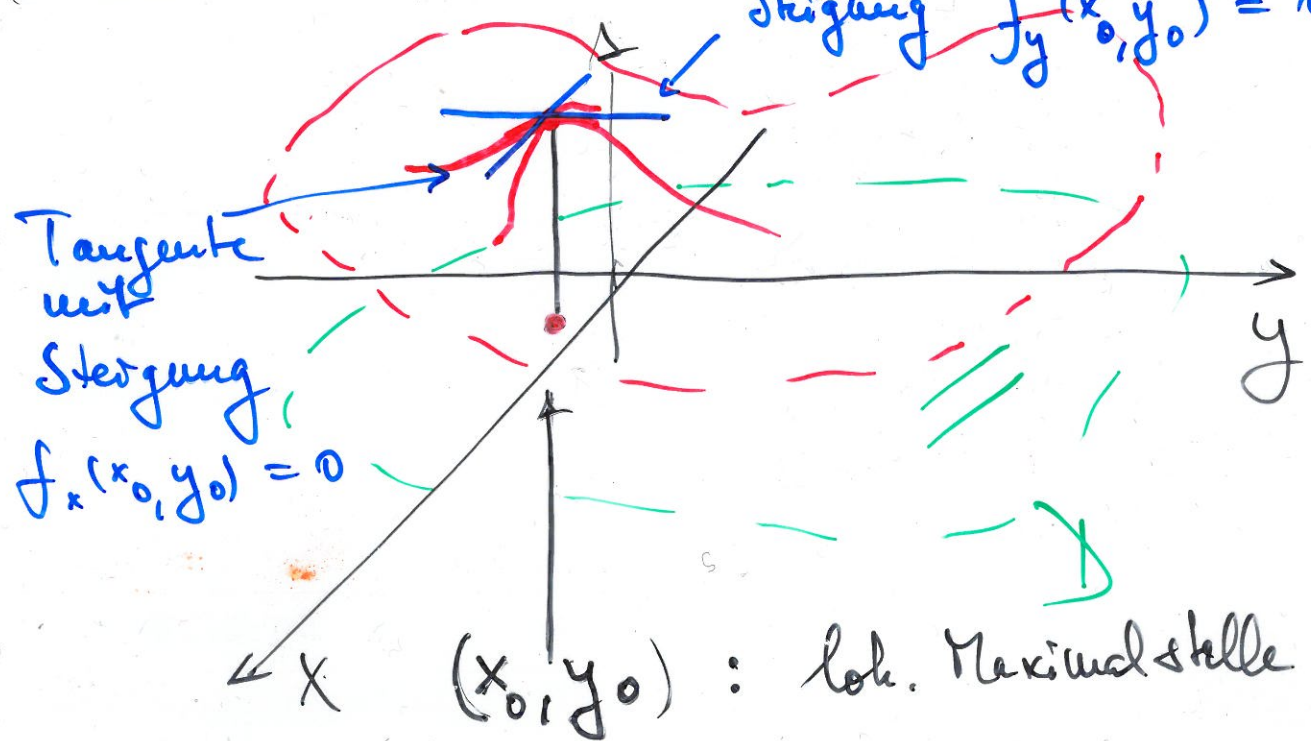 Steigung f_y(x_0, y_0) =
Tangente
mit
Steigung
f_x(x_0, y_0) = 0
y
D
x
(x_0, y_0) : lok. Maximalstelle